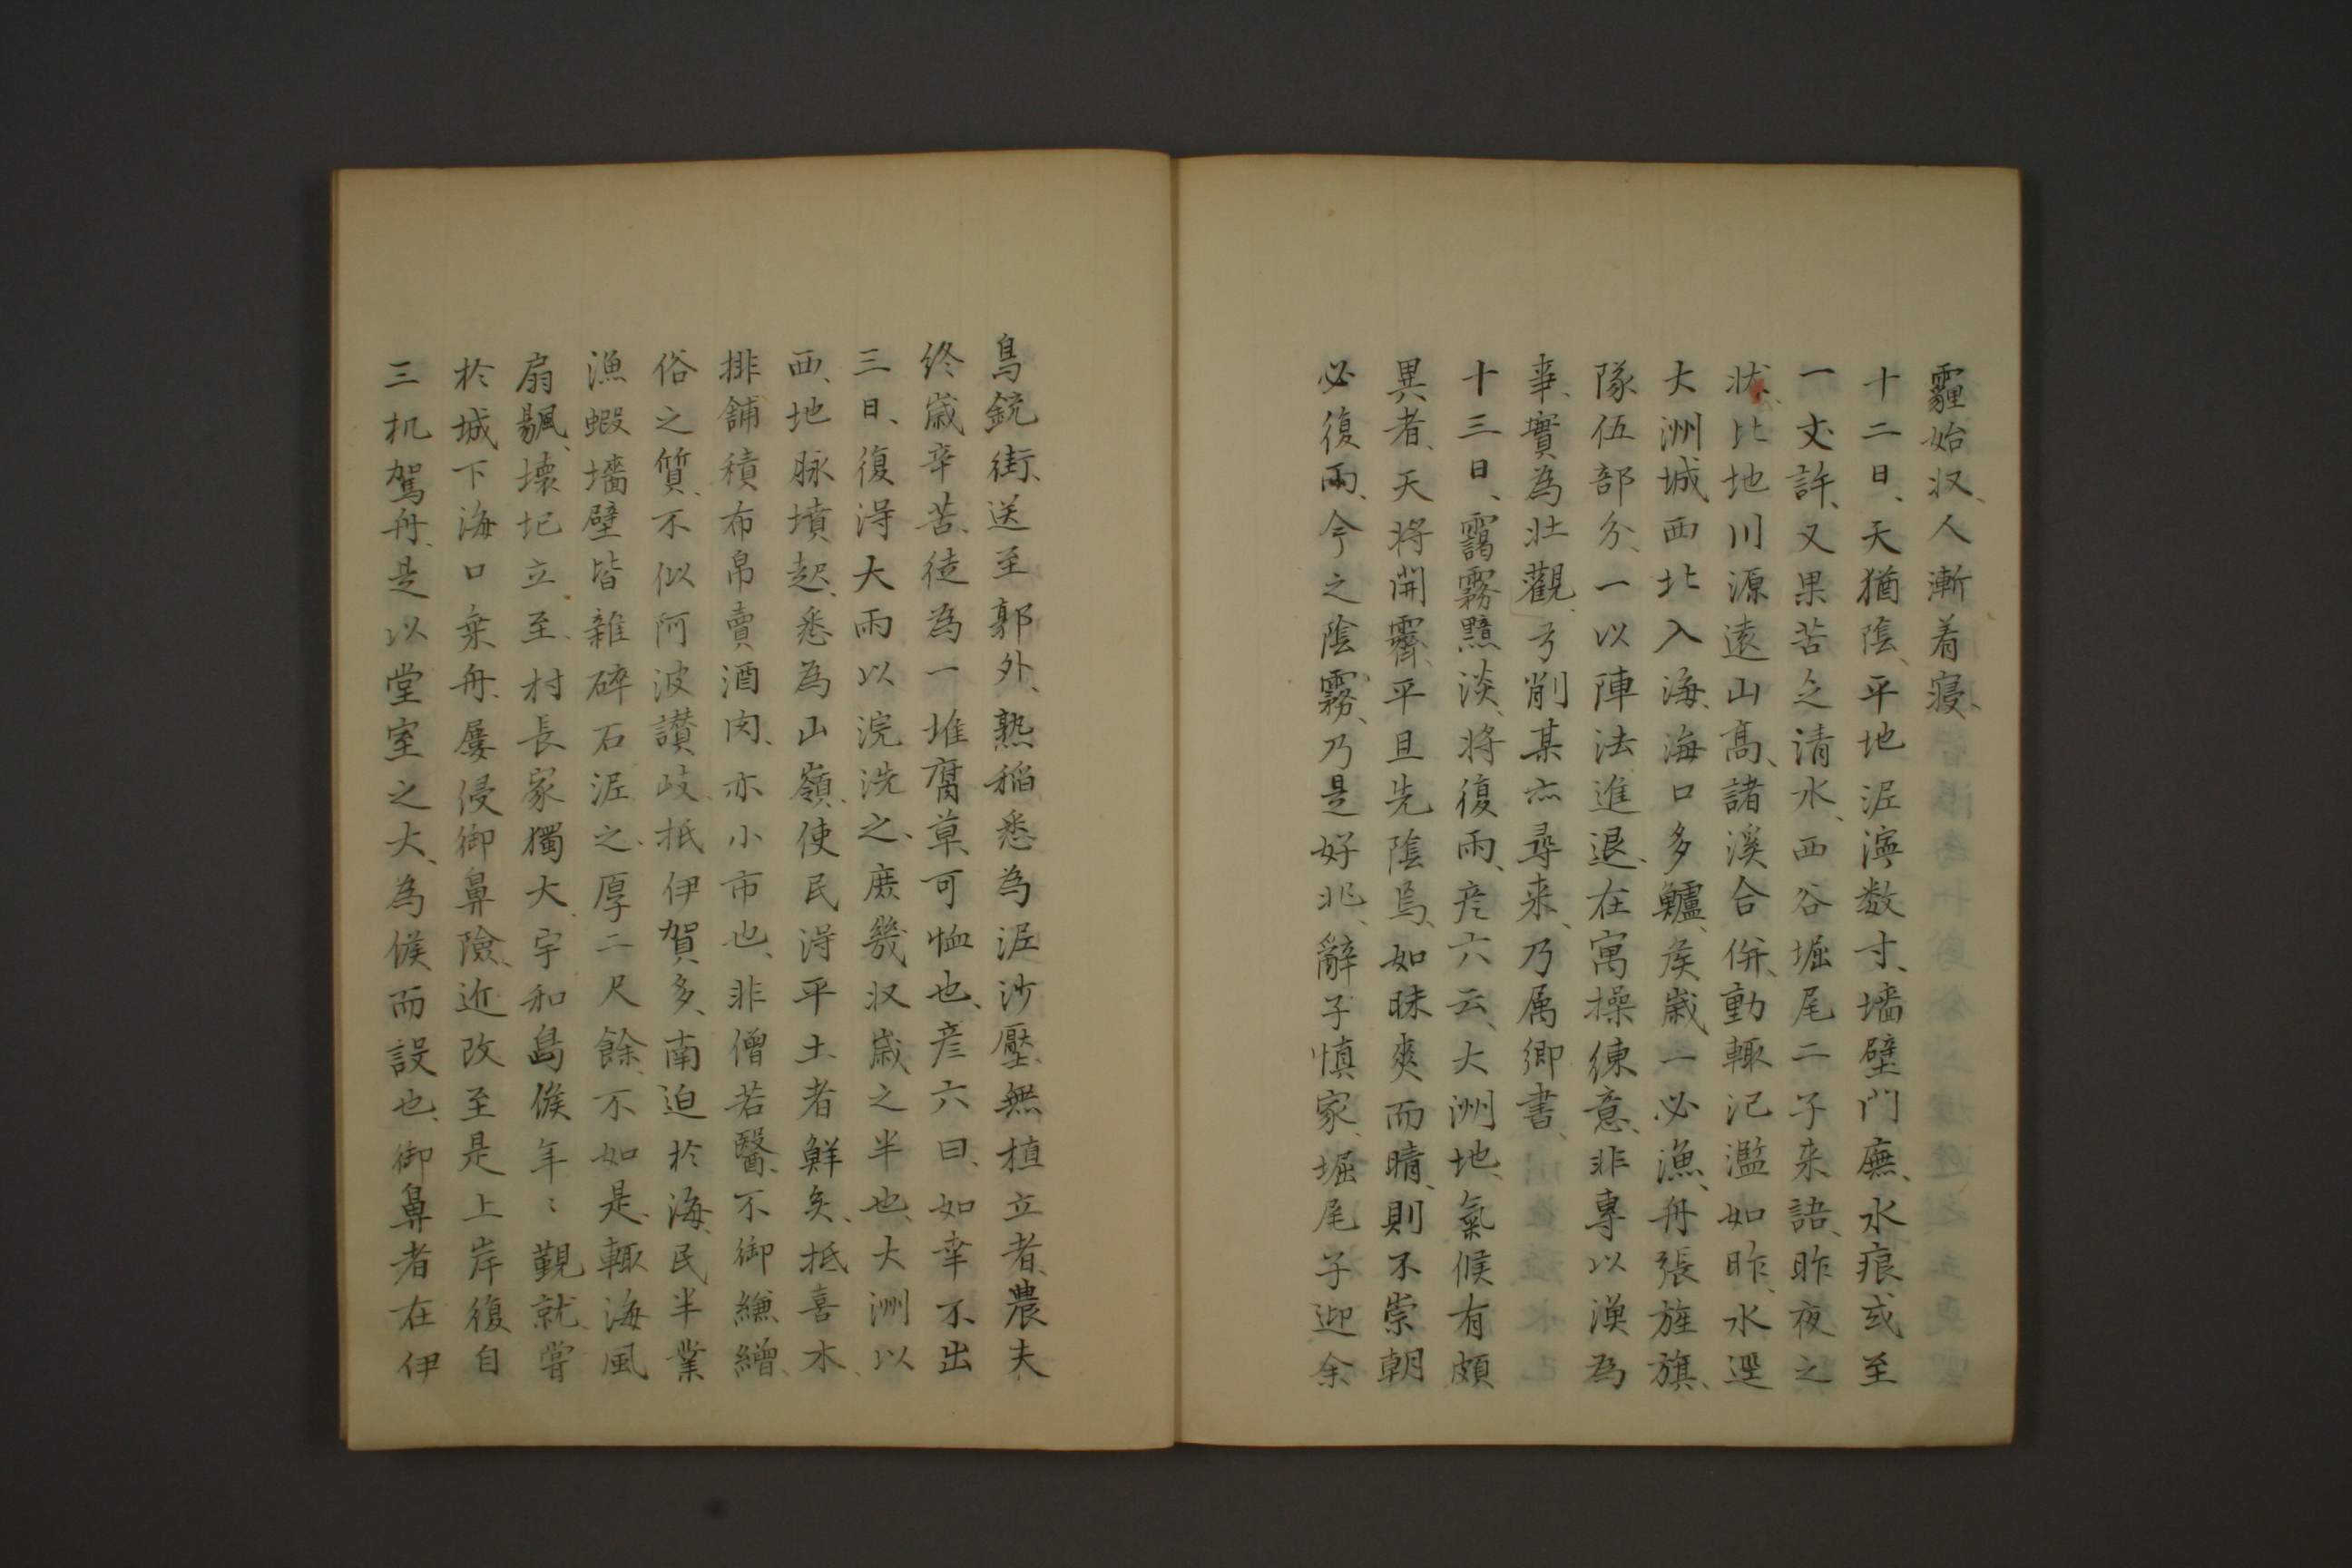 霾始収、人漸着寝、
十二日、天猶陰、平地泥濘数寸、墻壁門廡、水痕或至
一丈許、又果苦乏清水、西谷堀尾二子来語、昨夜之
状、比地川源遠山高、諸溪合併、動輒氾濫如昨、水逕
大洲城、西北入海、海口多鱸、矦歳一必漁、舟張旌旗、
隊伍部分、一以陣法進退、在寓操練意、非專以漁為
事、實為壮觀、亏削某亦尋来、乃属郷書、
十三日、靄霧黯淡、将復雨、彦六云、大洲地、氣候有頗
異者、天将開霽、平旦先陰烏、如昧爽而晴、則不崇朝
必復雨、今之陰霧、乃是好兆、辭子慎家、堀尾子迎余
鳥銃街、送至郭外、熟稲悉為泥沙壓、無植立者、農夫
終歳辛苦、徒為一堆腐草、可恤也、彦六曰、如幸不出
三日、復淂大雨以浣洗之、庶幾収歳之半也、大洲以
西、地脉墳起、悉為山嶺、使民淂平土者鮮矣、抵喜木、
排舗積布帛賣酒肉、亦小市也、非僧若醫、不御縑繒、
俗之質、不似阿波讃岐、抵伊賀多、南迫於海、民半業
漁蝦、墻壁皆雜碎石泥之、厚二尺餘、不如是、輒海風
扇颶、壊圮立至、村長家獨大、宇和島侯年〻覲就、嘗
於城下海口棄舟、屢侵御鼻險、近改至是上岸、復自
三机駕舟、是以堂室之大、為候而設也、御鼻者在伊